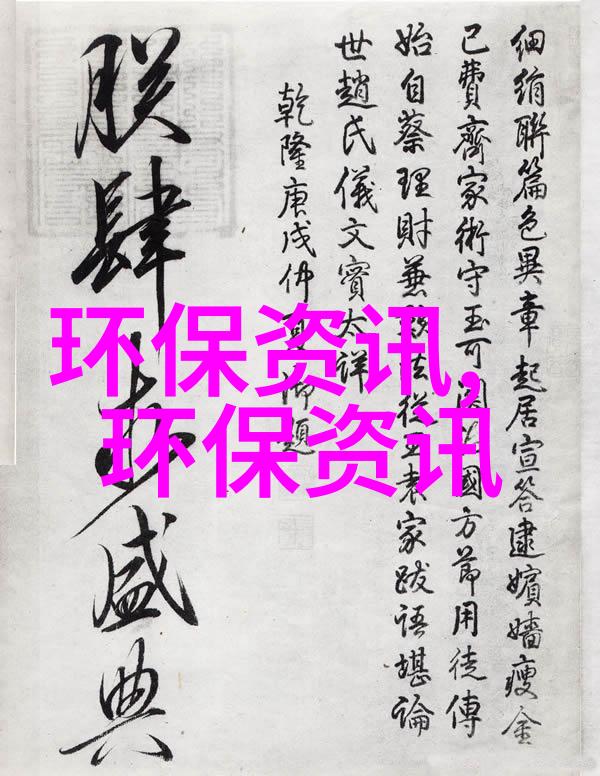 細絹聯篇色異章起居宣答逮嬪嬙瘦金
已費齊家術守玉可國方節用徒傳
始自蔡理財兼從袁家跋語堪論
世趙氏儀文實太詳
乾隆庚戌仲夏御題
朕肆盛典
环保资讯,
环保资讯